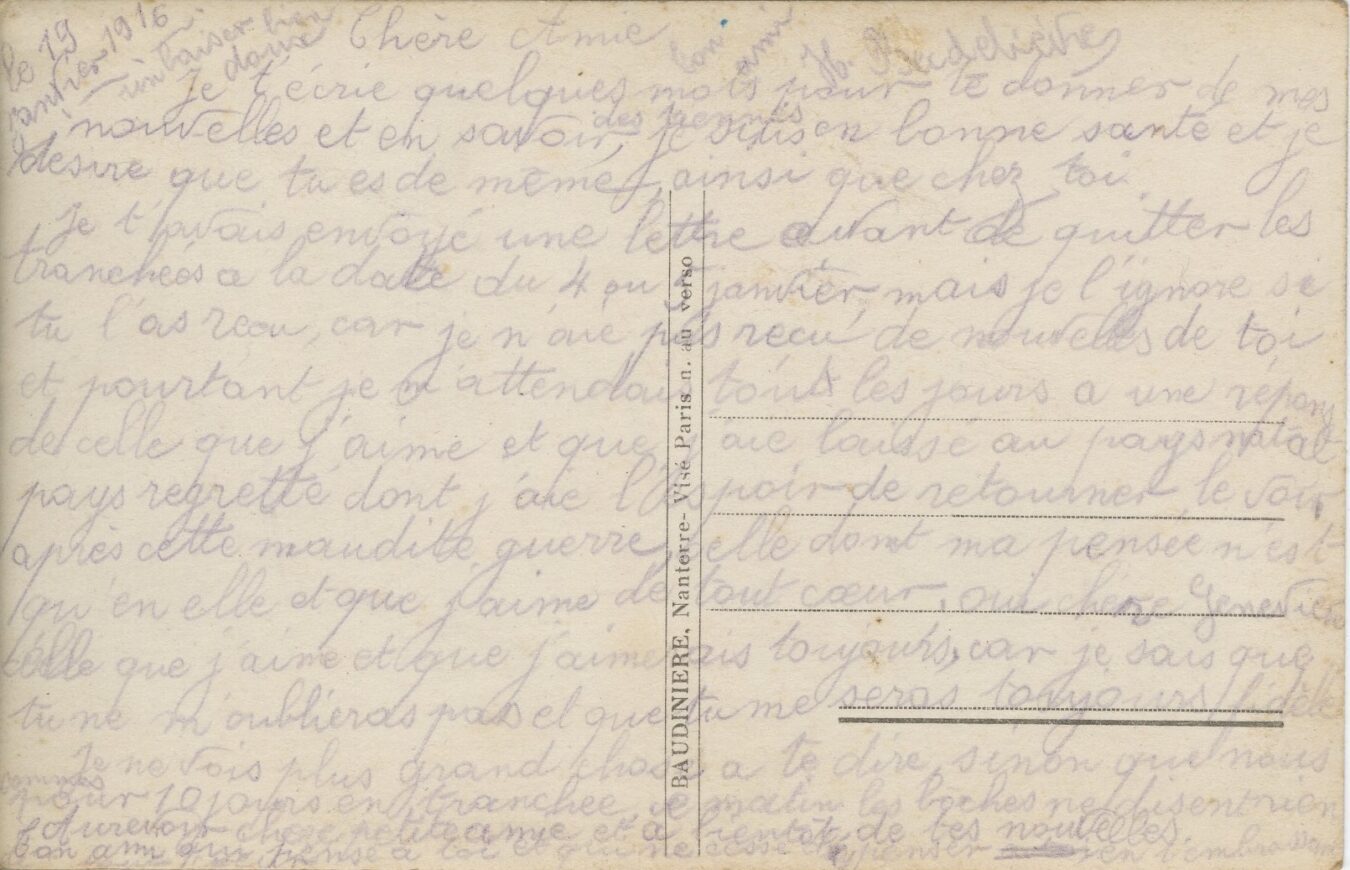 le 19
janvier 1916
Chère Amie
Je t'écrie quelques mots pour te donner de mes
nouvelles et en savoir des tiennes, je suis en bonne santé et je
désire que tu es de même, ainsi que chez toi
Je t'avais envoyé une lettre avant de quitter les
tranchées a la date du 4 ou 5 janvier, mais je l'ignore si
tu l'as recu, car je n'aie pas recu de nouvelles de toi
et pourtant je m'attendais tout les jours a une répons
de celle que j'aime et que j'aie laissé au pays natal
pays regretté dont j'aie l'espoir de retourner le voir
après cette maudite guerre, celle dont ma pensée n'est
qu'en elle et que j'aime de tout cœur, oui chere Genevieve
celle que j'aime et que j'aimerais toujours, car je sais que
tu ne m'oublieras pas et que tu me seras toujours fidèle
Je ne vois plus grand chose a te dire, sinon que nous
sommes
pour 10 jours en tranchée, ce matin les boches ne disent rien
Aurevoir chere petite amie et a bientôt de tes nouvelles.
ton ami qui pense a toi et qui ne cesse d'y penser en t'embrassant
un baiser bien
doux
ton ami
H.
BAUDINIERE, Nanterre - Visé Paris n. au verso